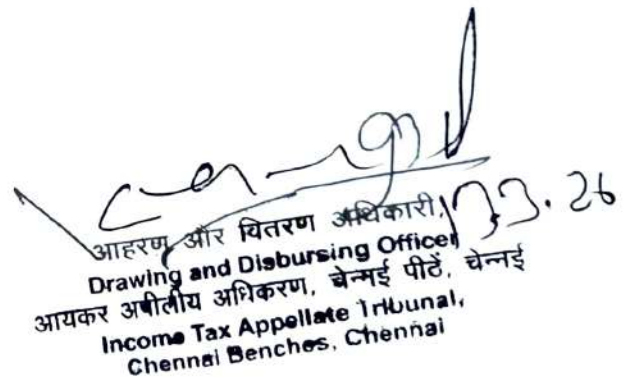 आहरण और वितरण अधिकारी,
Drawing and Disbursing Officer
आयकर अपीलीय अधिकरण, चेन्नई पीठें, चेन्नई
Income Tax Appellate Tribunal,
Chennai Benches, Chennai